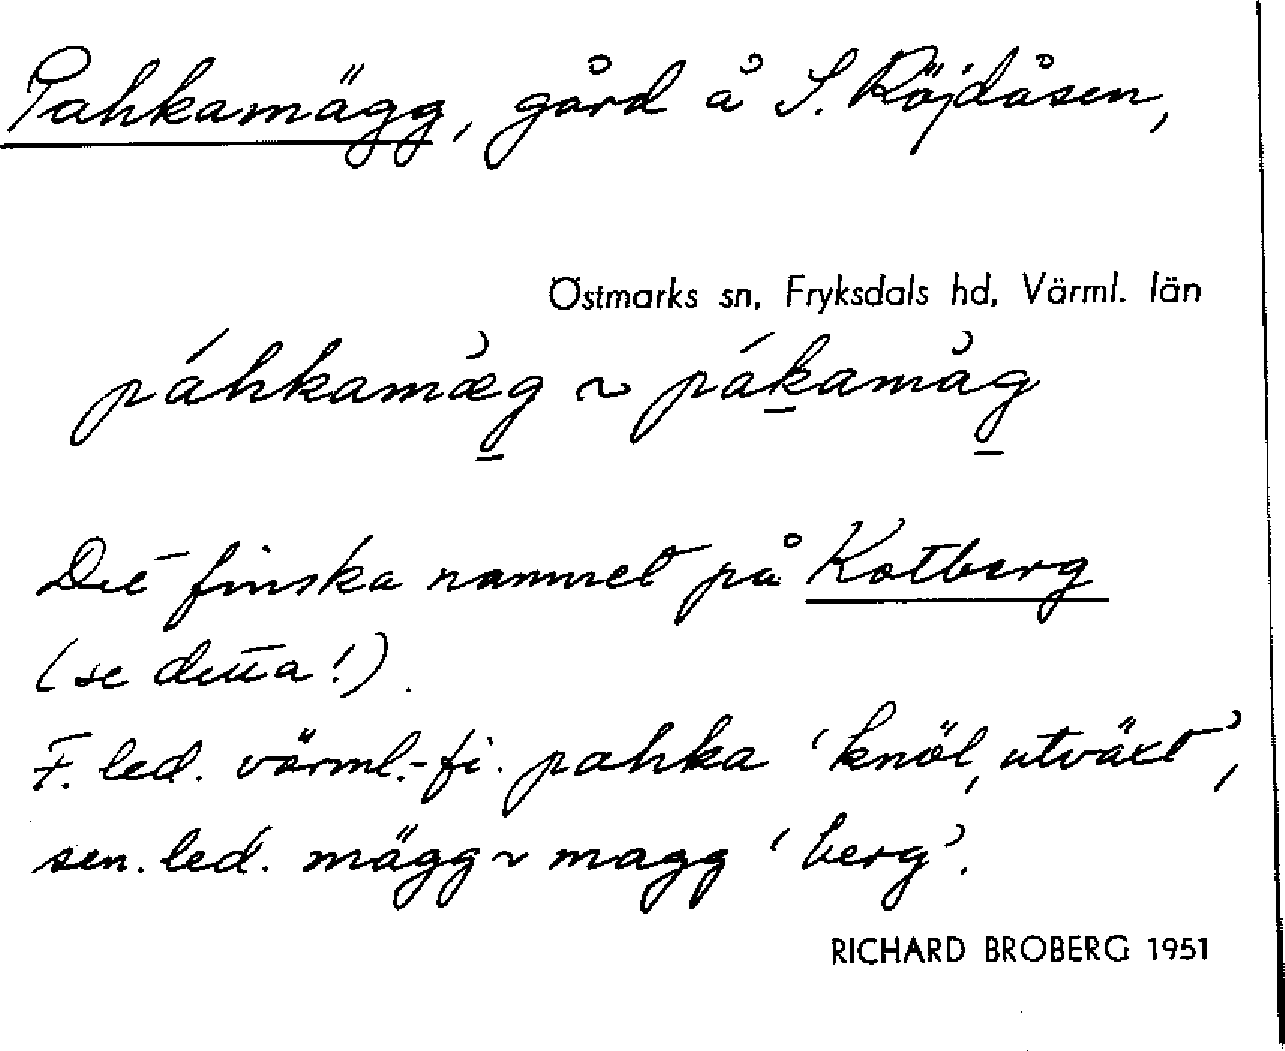 Pahkamägg, gård å S. Röjdåsen,
Östmarks sn, Fryksdals hd, Värml. län
páhkamæ̀g ~ pákamàg
Det finska namnet på Kotberg
(se detta!).
F. led. värml.-fi. pahka 'knöl, utväxt',
sen. led. mägg ~ magg 'berg'.
RICHARD BROBERG 1951